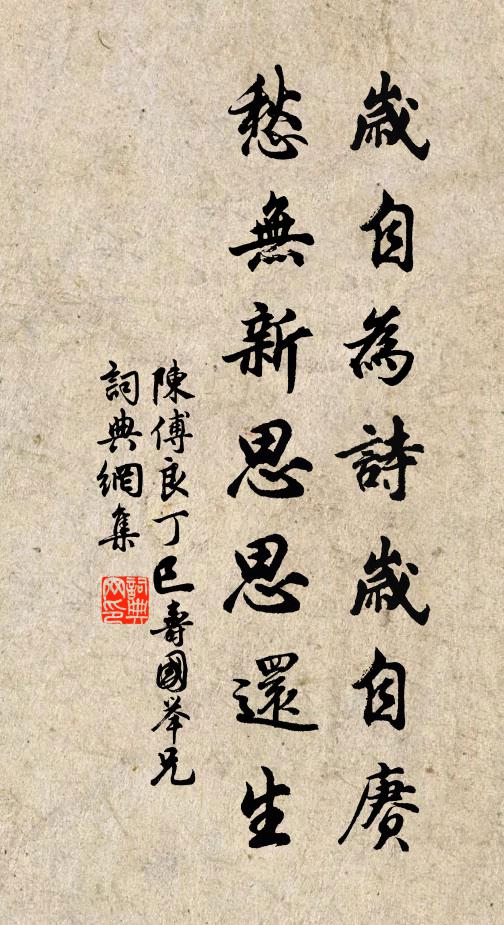 歲自為詩歲自賡
愁無新思思還生
陳傅良丁巳壽國举兄
詞典網集
詞典
网印